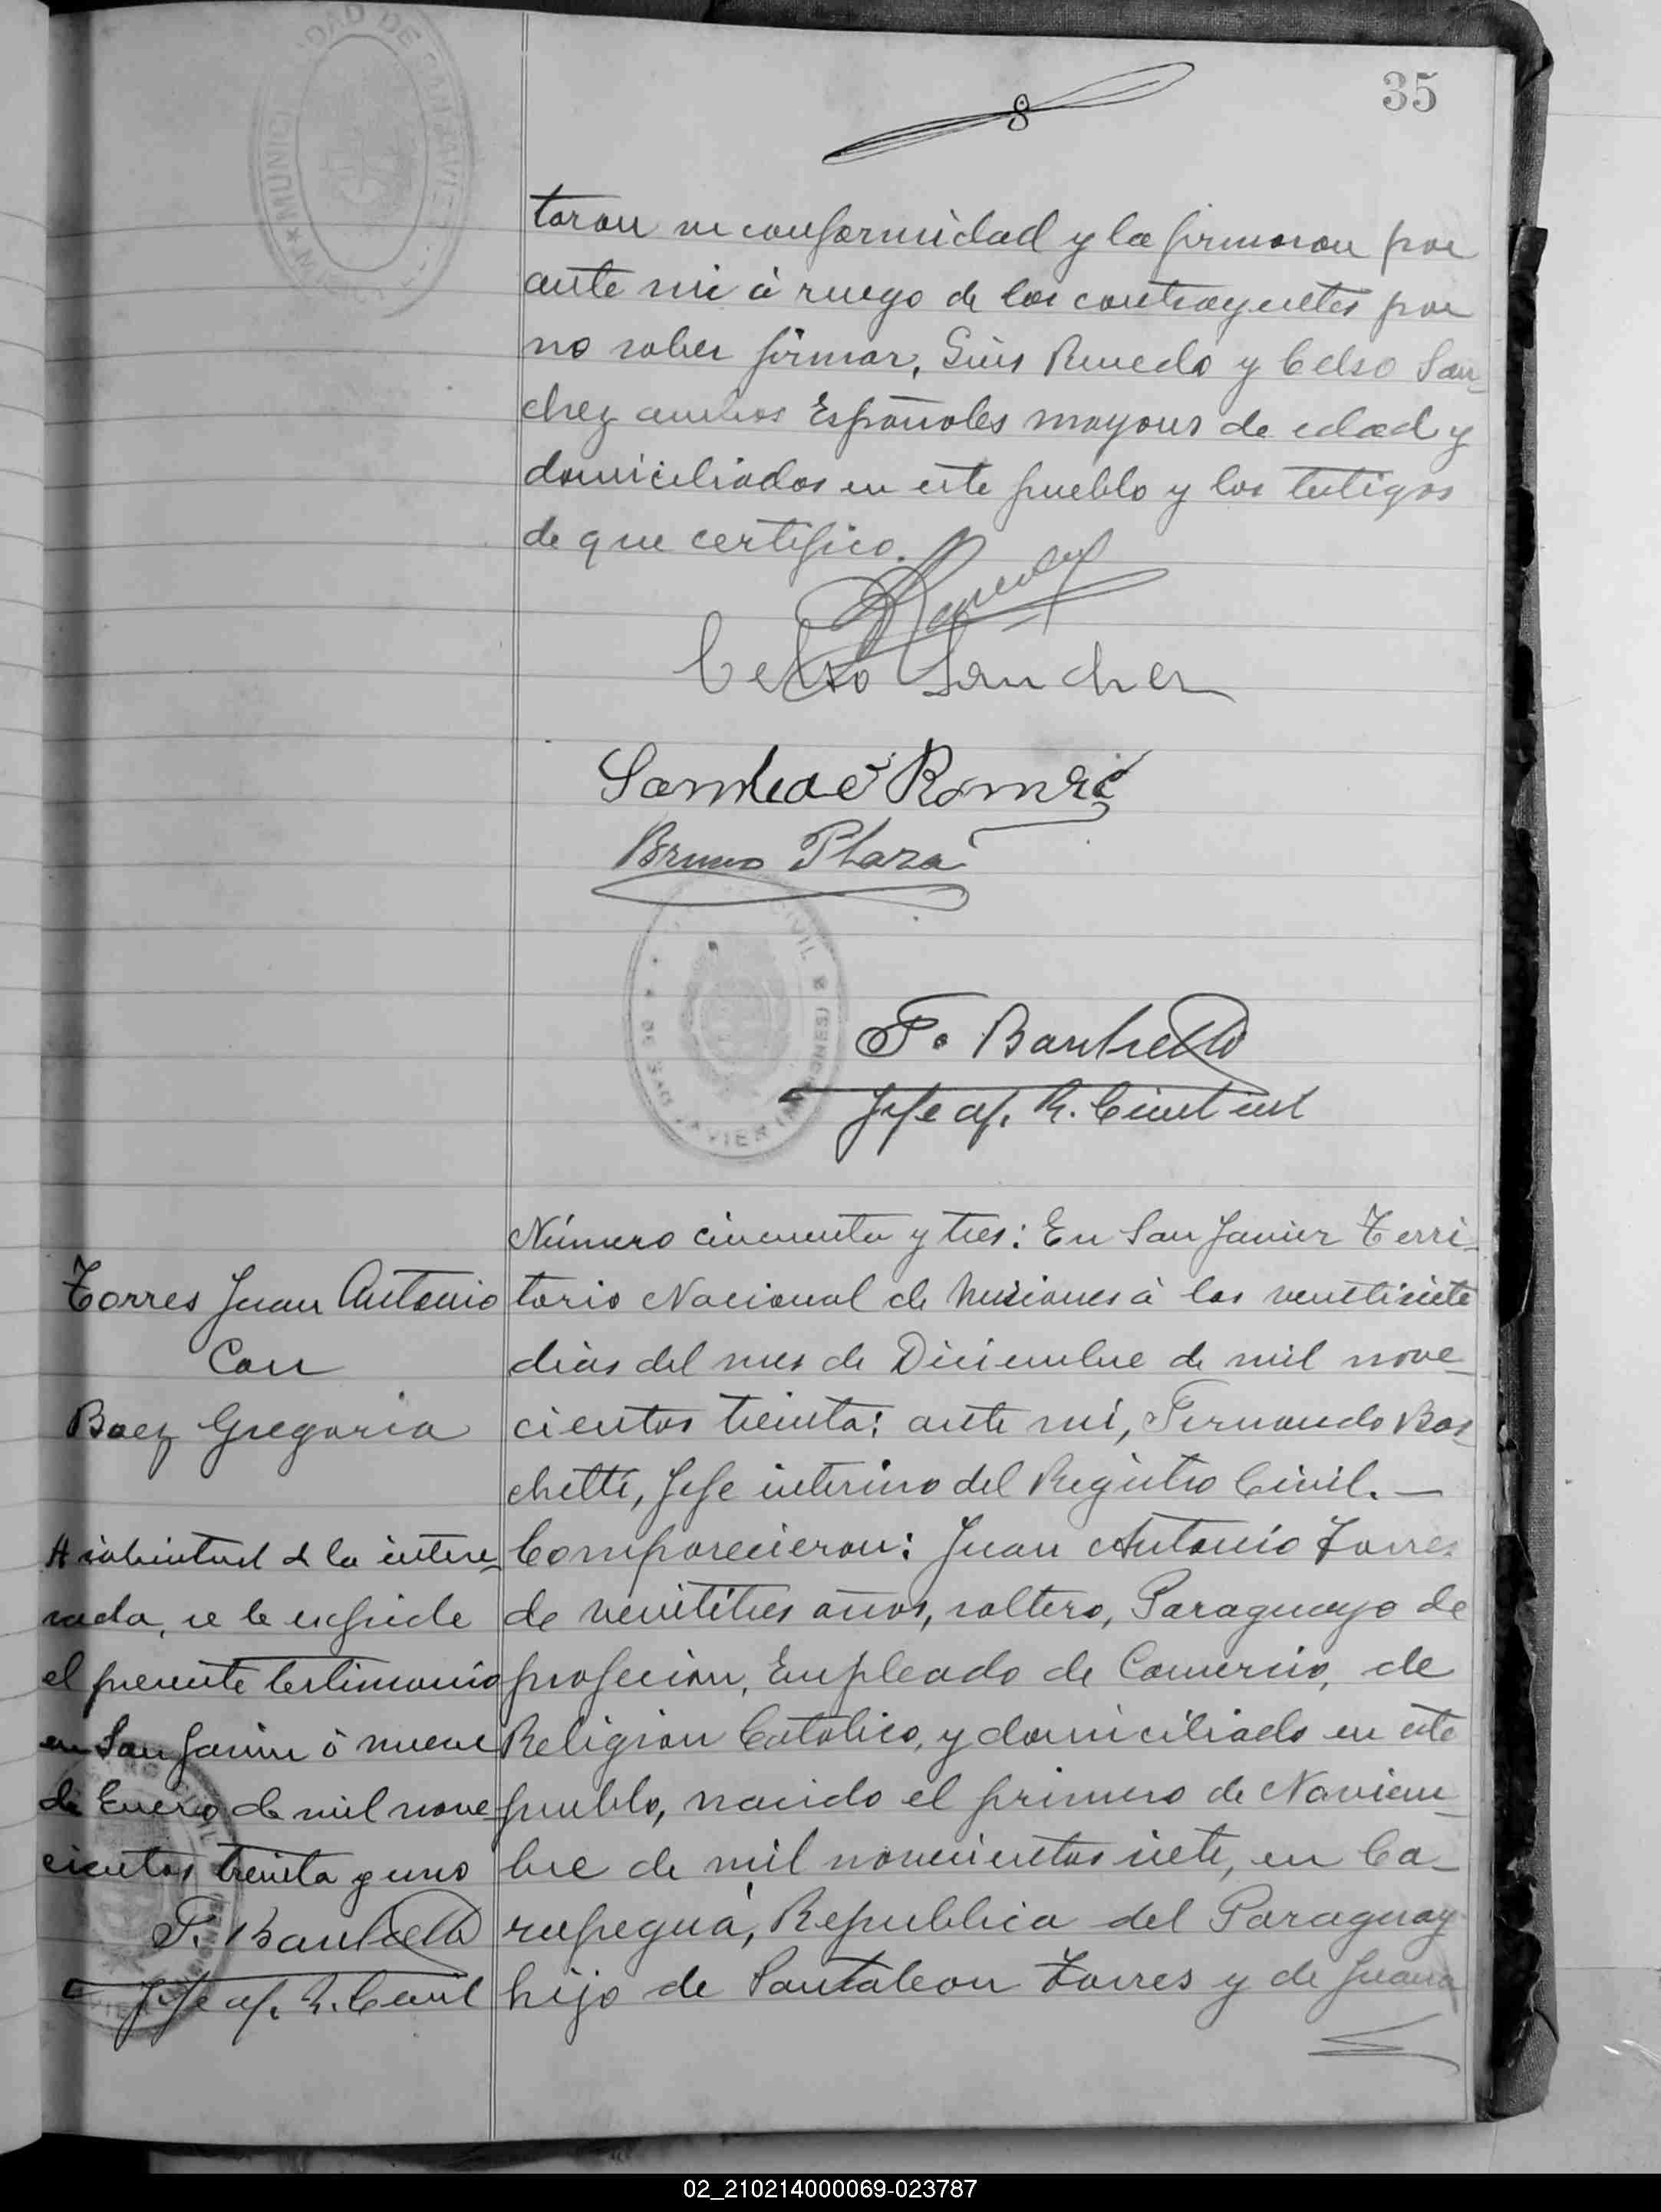 35
taron su conformidad y la firmaron por
ante mi á ruego de los contrayentes por
no saber firmar, Luis Ruedo y Celso San-
chez ambos Españoles mayores de edad y
domiciliados en este pueblo y los testigos
de que certifico.
Celso Sanchez
Bruno Plaza
F.
Jefe of. R. Civil int
Torres Juan Antonio
Con
Baez Gregoria
A solicitud de la intere-
sada, se le expide
el presente testimonio
en San Javier á nueve
de Enero de mil nove-
cientos treinta y uno
F.
Jefe of. R. Civil
Número cincuenta y tres: En San Javier Terri-
torio Nacional de Misiones á los ventisiete
dias del mes de Diciembre de mil nove-
cientos treinta: ante mi, Fernando Bas-
chetti, Jefe interino del Registro Civil. —
Comparecieron: Juan Antonio Torres
de ventitres años, soltero, Paraguayo de
profecion, Empleado de Comercio, de
Religion Catolico, y domiciliado en este
pueblo, nacido el primero de Noviem-
bre de mil novecientos siete, en Ca-
rapegua, Republica del Paraguay
hijo de Pantaleon Torres y de Juana
02_210214000069-023787